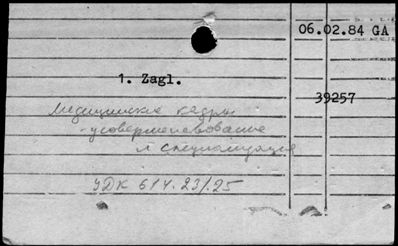 06.02.84 GA
1. Zagl.
39257
Медицинские кадры
-усовершенствование
и специализация
УДК 614.23/.25